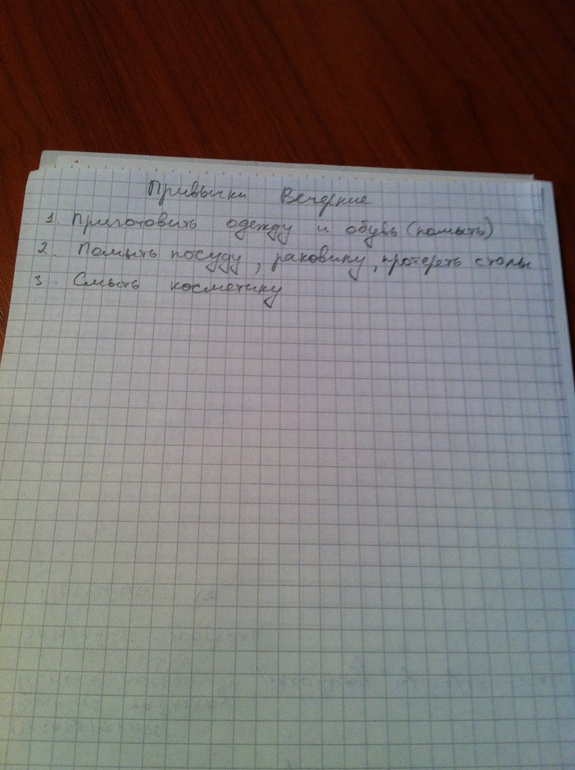 Привычки Вечерние
1. Приготовить одежду и обувь (помыть)
2. Помыть посуду, раковину, протереть столы
3. Смыть косметику